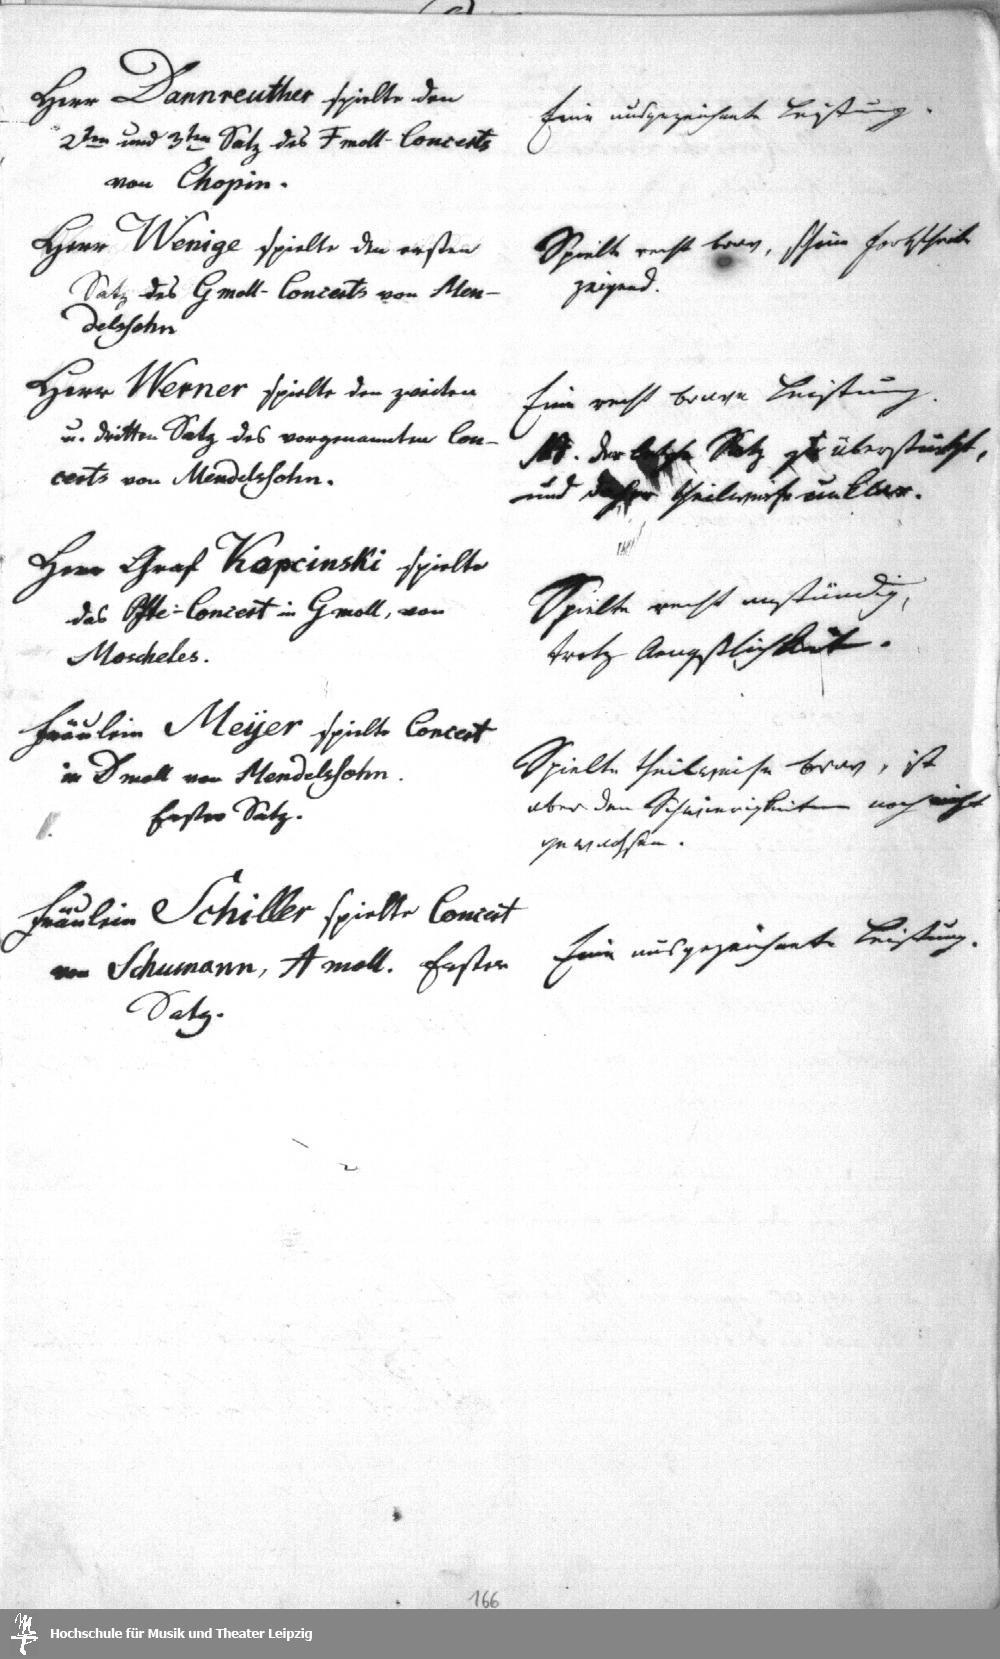 Herr Dannreuther spielte den
2ten und 3ten Satz des F moll-Concerts
von Chopin.
Eine ausgezeichnete Leistung.
Herr Wenige spielte den ersten
Satz des G moll-Concerts von Men-
delssohn
Spielte recht brav, schöne Fortschritte
zeigend.
Herr Werner spielte den zweiten
u. dritten Satz des vorgenannten Con-
certs von Mendelssohn.
Eine recht brave Leistung.
der letzte Satz überstürzt,
und daher theilweise unklar.
Herr Graf Kapcinski spielte
das Pfte-Concert in G moll, von
Moscheles.
Spielte recht anständig,
trotz Aengstlichkeit.
Fräulein Meyer spielte Concert
in D moll von Mendelssohn.
Erster Satz.
Spielte theilweise brav, ist
aber den Schwierigkeiten noch nicht
gewachsen.
Fräulein Schiller spielte Concert
von Schumann, A moll. Erster
Satz.
Eine ausgezeichnete Leistung.
166
Hochschule für Musik und Theater Leipzig